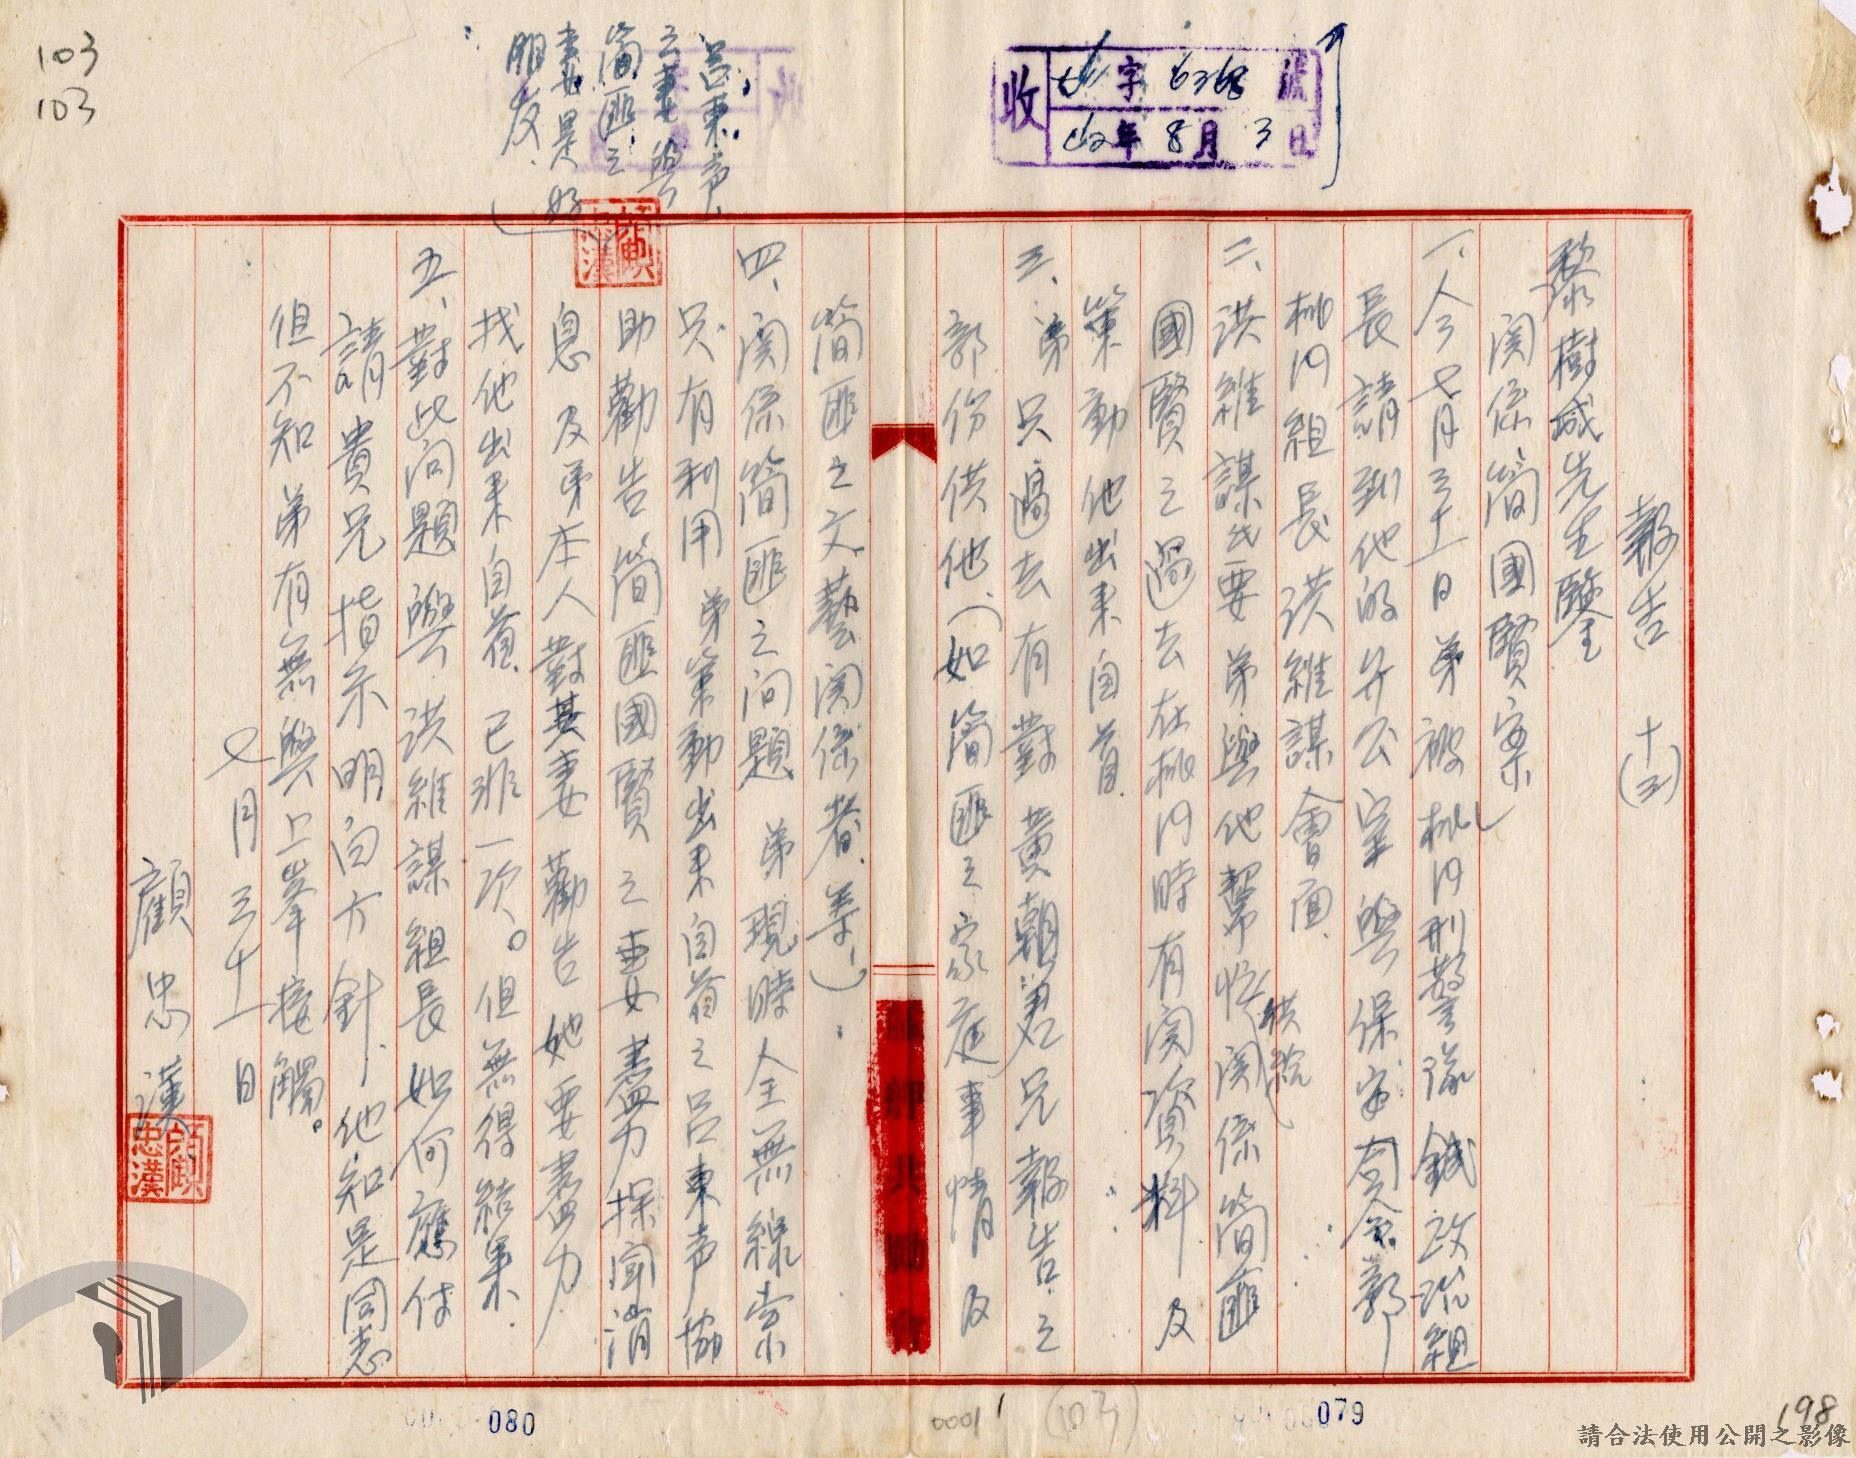 103
103
收
字 6368 號
42年 8月 3日
呂東声
之妻與
簡匪之
妻是好
朋友
報告 十(三)
黎樹斌先生鑒
関係簡國賢案
一、今七月三十一日弟被桃園刑警隊 政治組
長請到他的弁公室與保安司令部
桃園組長洪維謀會面
二、洪維謀氏要弟與他幫忙関係簡匪
供給
國賢之過去在桃園時有関資料及
策動他出来自首
三、弟只過去有對黃朝君兄報告之
部份供他(如簡匪之家庭事情及
簡匪之文藝関係者等)
四、関係簡匪之问題 弟現時人全無線索
只有利用弟策動出来自首之呂東声協
助勸告簡匪國賢之妻盡力探聞消
息及弟本人對其妻勸告她要盡力
找他出来自首 已非一次。但無得結果
五、對此问題與洪維謀組長如何應付
請貴兄指示明白方針 他知是同志
但不知弟有無與上峯接觸。
七月三十一日
顧忠漢
顧忠漢
顧忠漢
080
0001
(103)
079
198
請合法使用公開之影像